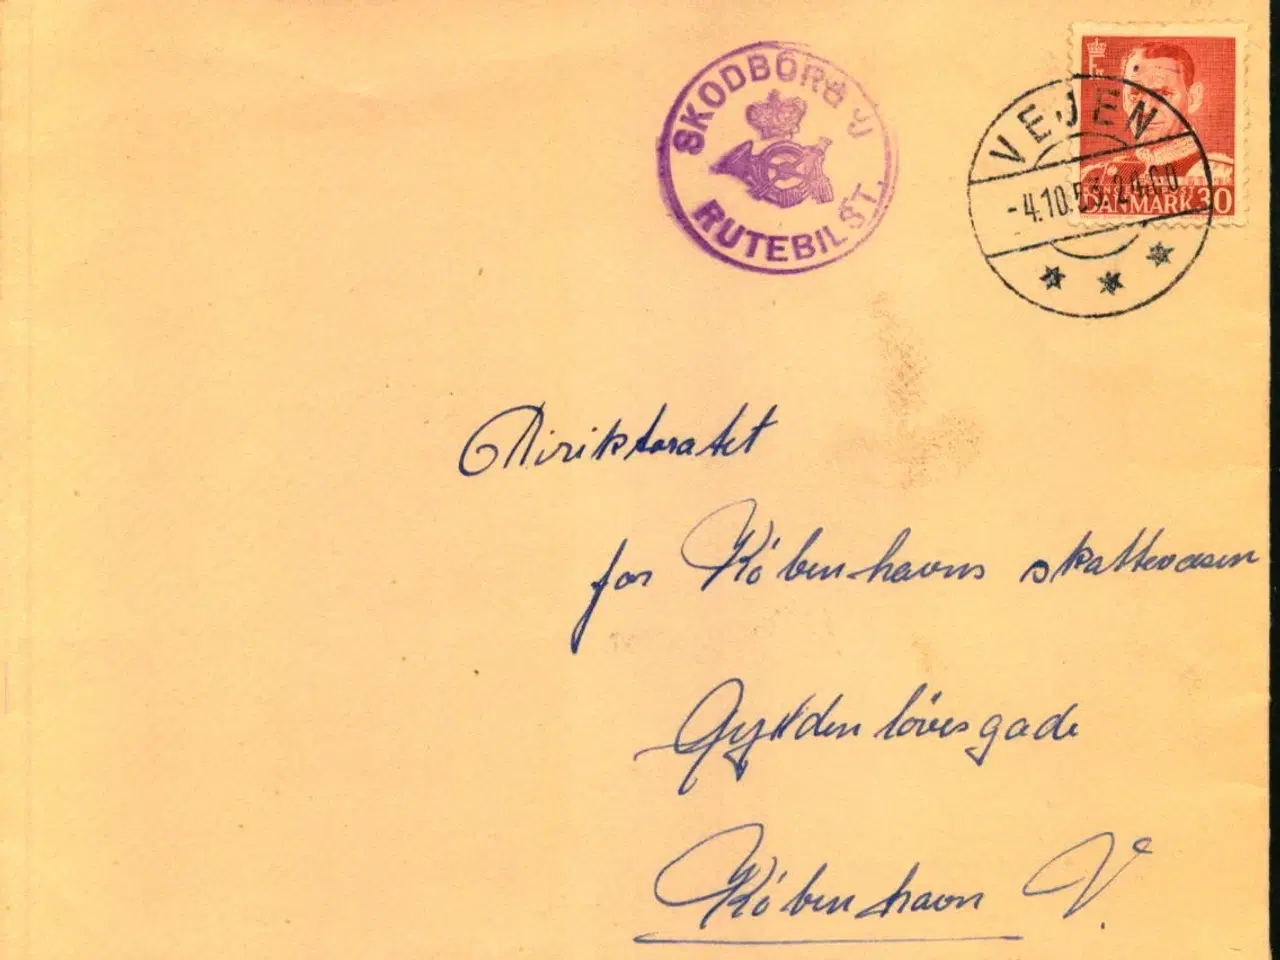 SKODBORG J
RUTEBILST.
VEJEN
-4.10.53.24.00
DANMARK 30
Diriktoratet
for Københavns skattevæsen
Gyldenløvesgade
København V.